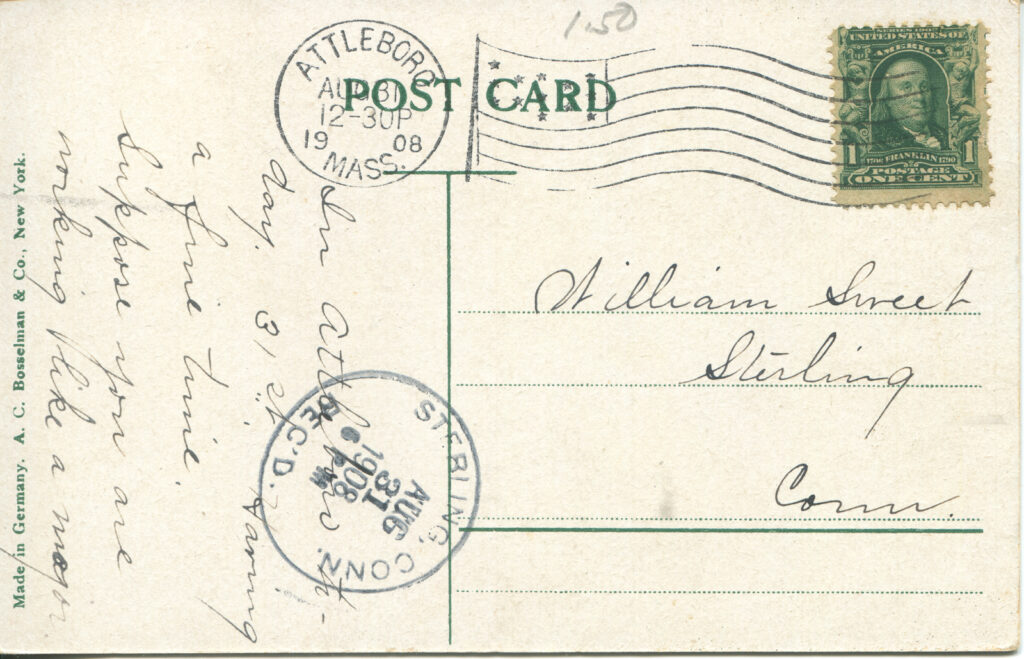 1.50
ATTLEBORO
AUG 31
12-30P
19 08
MASS.
POST CARD
SERIES 1902
UNITED STATES OF
AMERICA
1 1706 FRANKLIN 1790 1
POSTAGE
ONE CENT
In Attleboro to-
day. 31st. Having
a fine time.
Suppose you are
working like a
William Sweet
Sterling
Conn.
STERLING, CONN.
AUG
31
1908
REC'D.
Made in Germany. A. C. Bosselman & Co., New York.